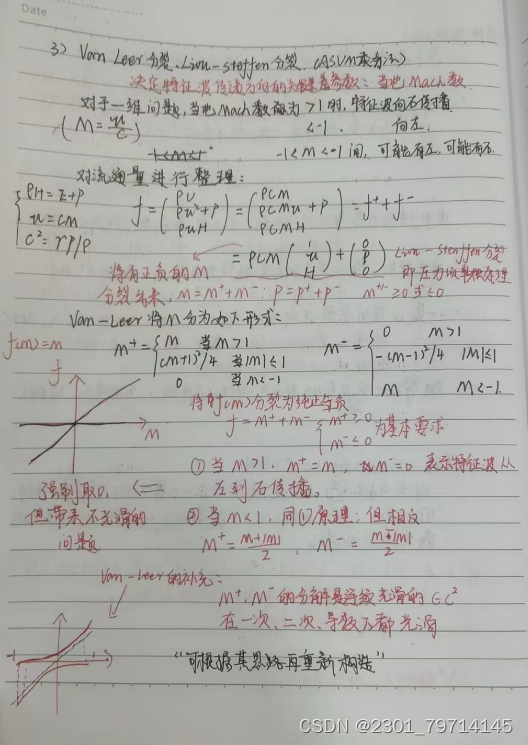 Date
3) Van Leer分裂、Liou-Steffen分裂 (AUSM类方法)
决定特征波传递方向的关键是参数:当地Mach数
对于一维问题,当地Mach数为>1时,特征波向右传播
(M=u/c)
<-1. 向左.
-1<M<1
-1<M<1间,可能有左,可能有右.
对流通量进行整理:
ρH=E+P
u=cM
c²=rp/ρ
f=(ρU ρu²+P ρuH)=(ρCM ρCMu+P ρCMH)=f⁺+f⁻
=ρCM(1 u H)+(0 P 0) Liou-Steffen分裂
即压力项单独处理
将有正负的M
分裂出来, M=M⁺+M⁻; P=P⁺+P⁻ M⁺/⁻ ≥0或≤0
Van-Leer将M分为如下形式:
f(M)=M
M⁺={M 当M>1
(M+1)²/4 当|M|≤1
0 当M<-1
M⁻={0 M>1
-(M-1)²/4 |M|≤1
M M<-1.
f
M
将f(M)分裂为纯正与负
f=M⁺+M⁻ {M⁺≥0 M⁻≤0 为基本要求.
①当M>1, M⁺=M, M⁻=0 表示特征波从
左到右传播。
强制取0, <=
但带来不光滑的
问题
②当M<1,同①原理;但相反
M⁺=M+|M|/2, M⁻=M-|M|/2
Van-Leer的补充:
M⁺,M⁻的分解是连续光滑的∈C²
在一次、二次、导数下都光滑
-1
1
"可根据其思路再重新构造"
CSDN @2301_79714145